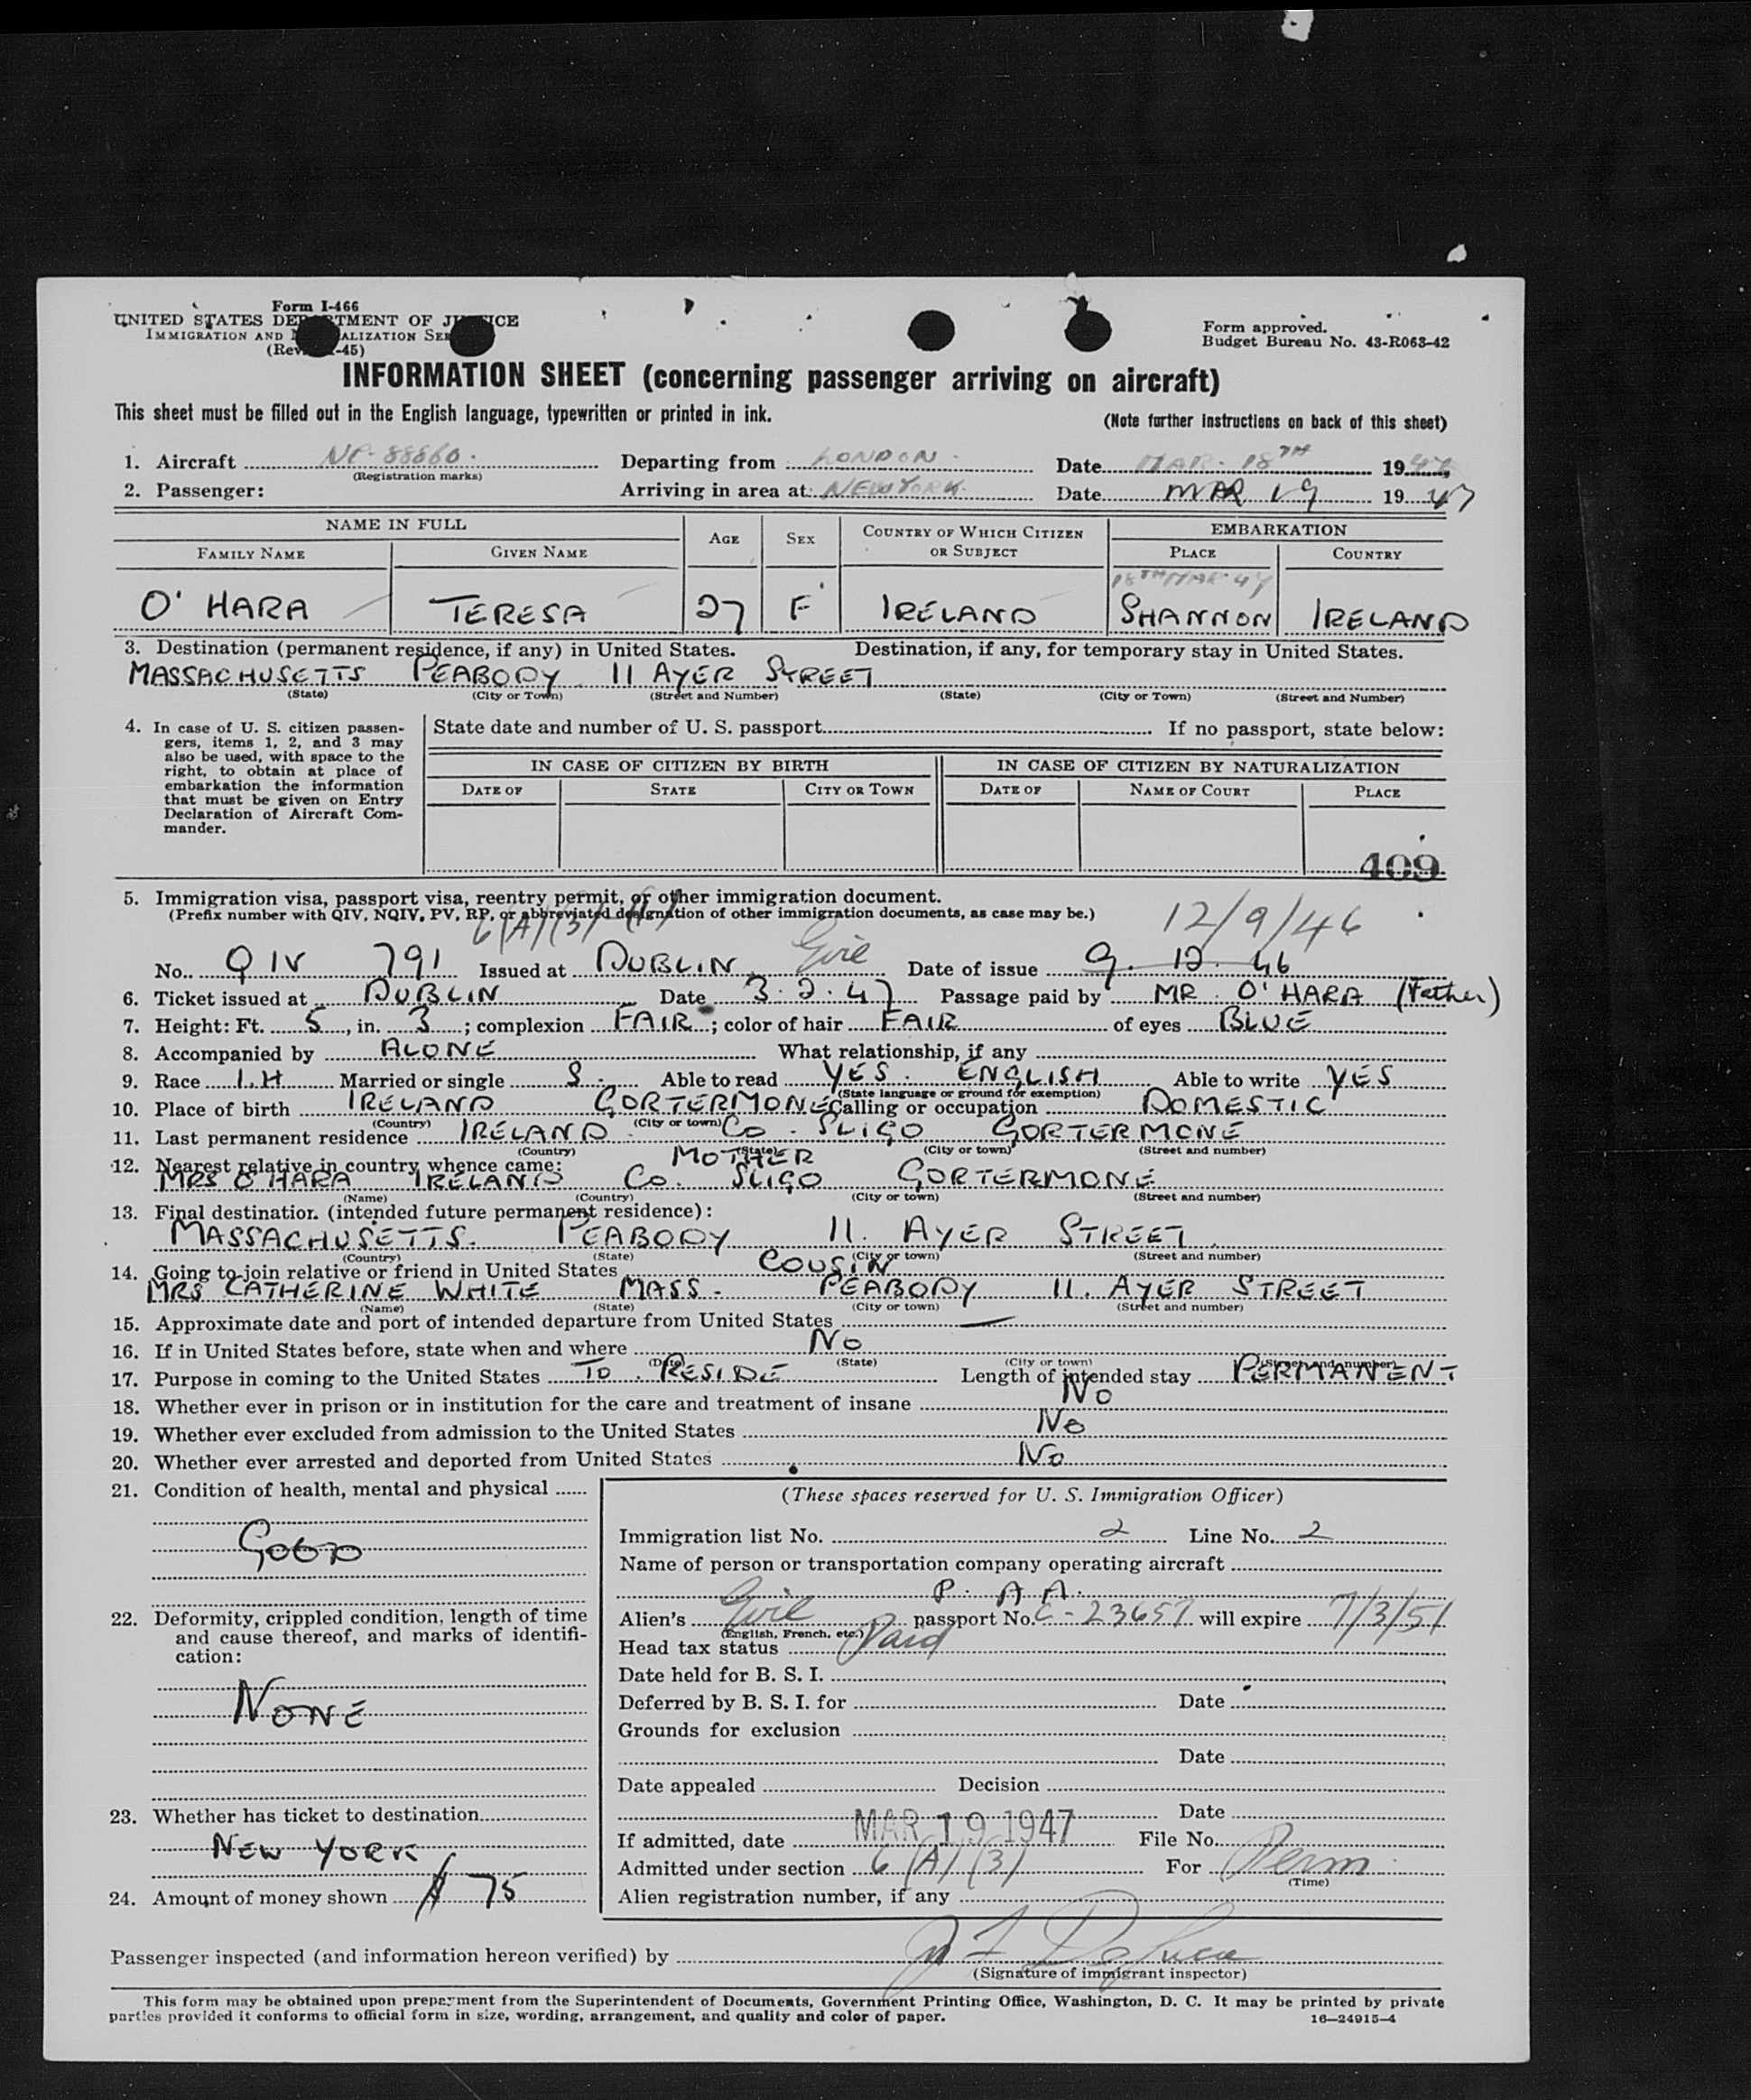 Form I-466
UNITED STATES DEPARTMENT OF JUSTICE
IMMIGRATION AND NATURALIZATION SERVICE
(Rev. -45)
Form approved.
Budget Bureau No. 43-R063-42
INFORMATION SHEET (concerning passenger arriving on aircraft)
This sheet must be filled out in the English language, typewritten or printed in ink.
(Note further instructions on back of this sheet)
1. Aircraft 88860 Departing from LONDON Date MAR. 18TH 19
(Registration marks)
2. Passenger: Arriving in area at NEW YORK Date MAR 19 1947
NAME IN FULL AGE SEX COUNTRY OF WHICH CITIZEN OR SUBJECT EMBARKATION
FAMILY NAME GIVEN NAME PLACE COUNTRY
18TH MAR 47
O'HARA TERESA 27 F IRELAND SHANNON IRELAND
3. Destination (permanent residence, if any) in United States. Destination, if any, for temporary stay in United States.
MASSACHUSETTS PEABODY 11 AYER STREET
(State) (City or Town) (Street and Number) (State) (City or Town) (Street and Number)
4. In case of U. S. citizen passen-
gers, items 1, 2, and 3 may
also be used, with space to the
right, to obtain at place of
embarkation the information
that must be given on Entry
Declaration of Aircraft Com-
mander.
State date and number of U. S. passport If no passport, state below:
IN CASE OF CITIZEN BY BIRTH IN CASE OF CITIZEN BY NATURALIZATION
DATE OF STATE CITY OR TOWN DATE OF NAME OF COURT PLACE
409
5. Immigration visa, passport visa, reentry permit, or other immigration document.
(Prefix number with QIV, NQIV, PV, RP, or abbreviated designation of other immigration documents, as case may be.)
6(A)(3) 12/9/46
No. QIV 791 Issued at DUBLIN Eire Date of issue 9.12.46
6. Ticket issued at DUBLIN Date 3.2.47 Passage paid by MR. O'HARA (Father)
7. Height: Ft. 5, in. 3; complexion FAIR; color of hair FAIR of eyes BLUE
8. Accompanied by ALONE What relationship, if any
9. Race I.H Married or single S. Able to read YES. ENGLISH Able to write YES
(State language or ground for exemption)
10. Place of birth IRELAND GORTERMONE Calling or occupation DOMESTIC
(Country) (City or town)
11. Last permanent residence IRELAND. CO. SLIGO GORTERMONE
(Country) (State) (City or town) (Street and number)
12. Nearest relative in country whence came: MOTHER
MRS O'HARA IRELAND CO. SLIGO GORTERMONE
(Name) (Country) (City or town) (Street and number)
13. Final destination (intended future permanent residence):
MASSACHUSETTS. PEABODY 11. AYER STREET
(Country) (State) (City or town) (Street and number)
14. Going to join relative or friend in United States COUSIN
MRS CATHERINE WHITE MASS. PEABODY 11. AYER STREET
(Name) (State) (City or town) (Street and number)
15. Approximate date and port of intended departure from United States —
16. If in United States before, state when and where NO
(Date) (State) (City or town) (Street and number)
17. Purpose in coming to the United States TO RESIDE Length of intended stay PERMANENT
18. Whether ever in prison or in institution for the care and treatment of insane NO
19. Whether ever excluded from admission to the United States NO
20. Whether ever arrested and deported from United States NO
21. Condition of health, mental and physical
GOOD
22. Deformity, crippled condition, length of time
and cause thereof, and marks of identifi-
cation:
NONE
23. Whether has ticket to destination
NEW YORK
24. Amount of money shown $ 75
(These spaces reserved for U. S. Immigration Officer)
Immigration list No. 2 Line No. 2
Name of person or transportation company operating aircraft
P. A A.
Alien's Eire passport No. C-23657 will expire 7/3/51
(English, French, etc.)
Head tax status Paid
Date held for B. S. I.
Deferred by B. S. I. for Date
Grounds for exclusion
Date
Date appealed Decision
Date
If admitted, date MAR 19 1947 File No.
Admitted under section 6(A)(3) For Perm
(Time)
Alien registration number, if any
Passenger inspected (and information hereon verified) by
(Signature of immigrant inspector)
This form may be obtained upon prepayment from the Superintendent of Documents, Government Printing Office, Washington, D. C. It may be printed by private
parties provided it conforms to official form in size, wording, arrangement, and quality and color of paper. 16—24915-4